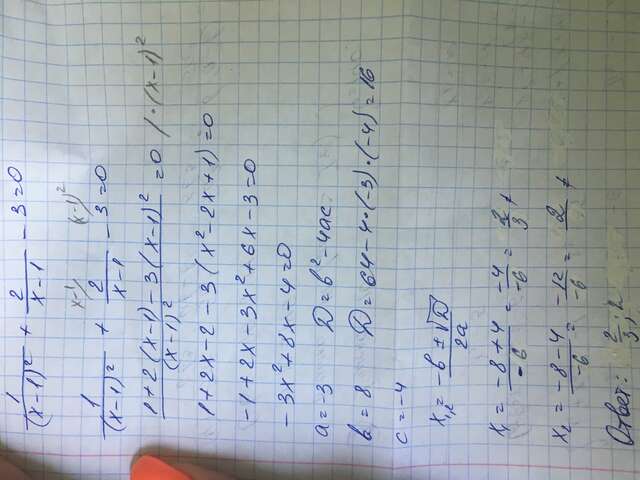 1/(x-1)² + 2/(x-1) - 3 = 0
x-1) (x-1)²
1/(x-1)² + 2/(x-1) - 3 = 0
(1+2(x-1)-3(x-1)²)/(x-1)² = 0 / · (x-1)²
1+2x-2-3(x²-2x+1)=0
-1+2x-3x²+6x-3=0
-3x²+8x-4=0
a=-3 D=b²-4ac
b=8 D=64-4·(-3)·(-4)=16
c=-4
x₁,₂ = (-b±√D)/2a
x₁ = (-8+4)/-6 = -4/-6 = 2/3 +
x₂ = (-8-4)/-6 = -12/-6 = 2 +
Ответ: 2/3; 2